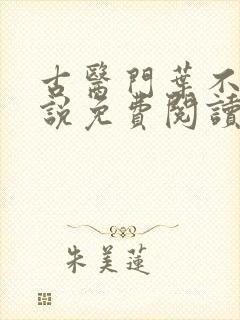 古醫門葉不
說免費閱讀
朱美蓮